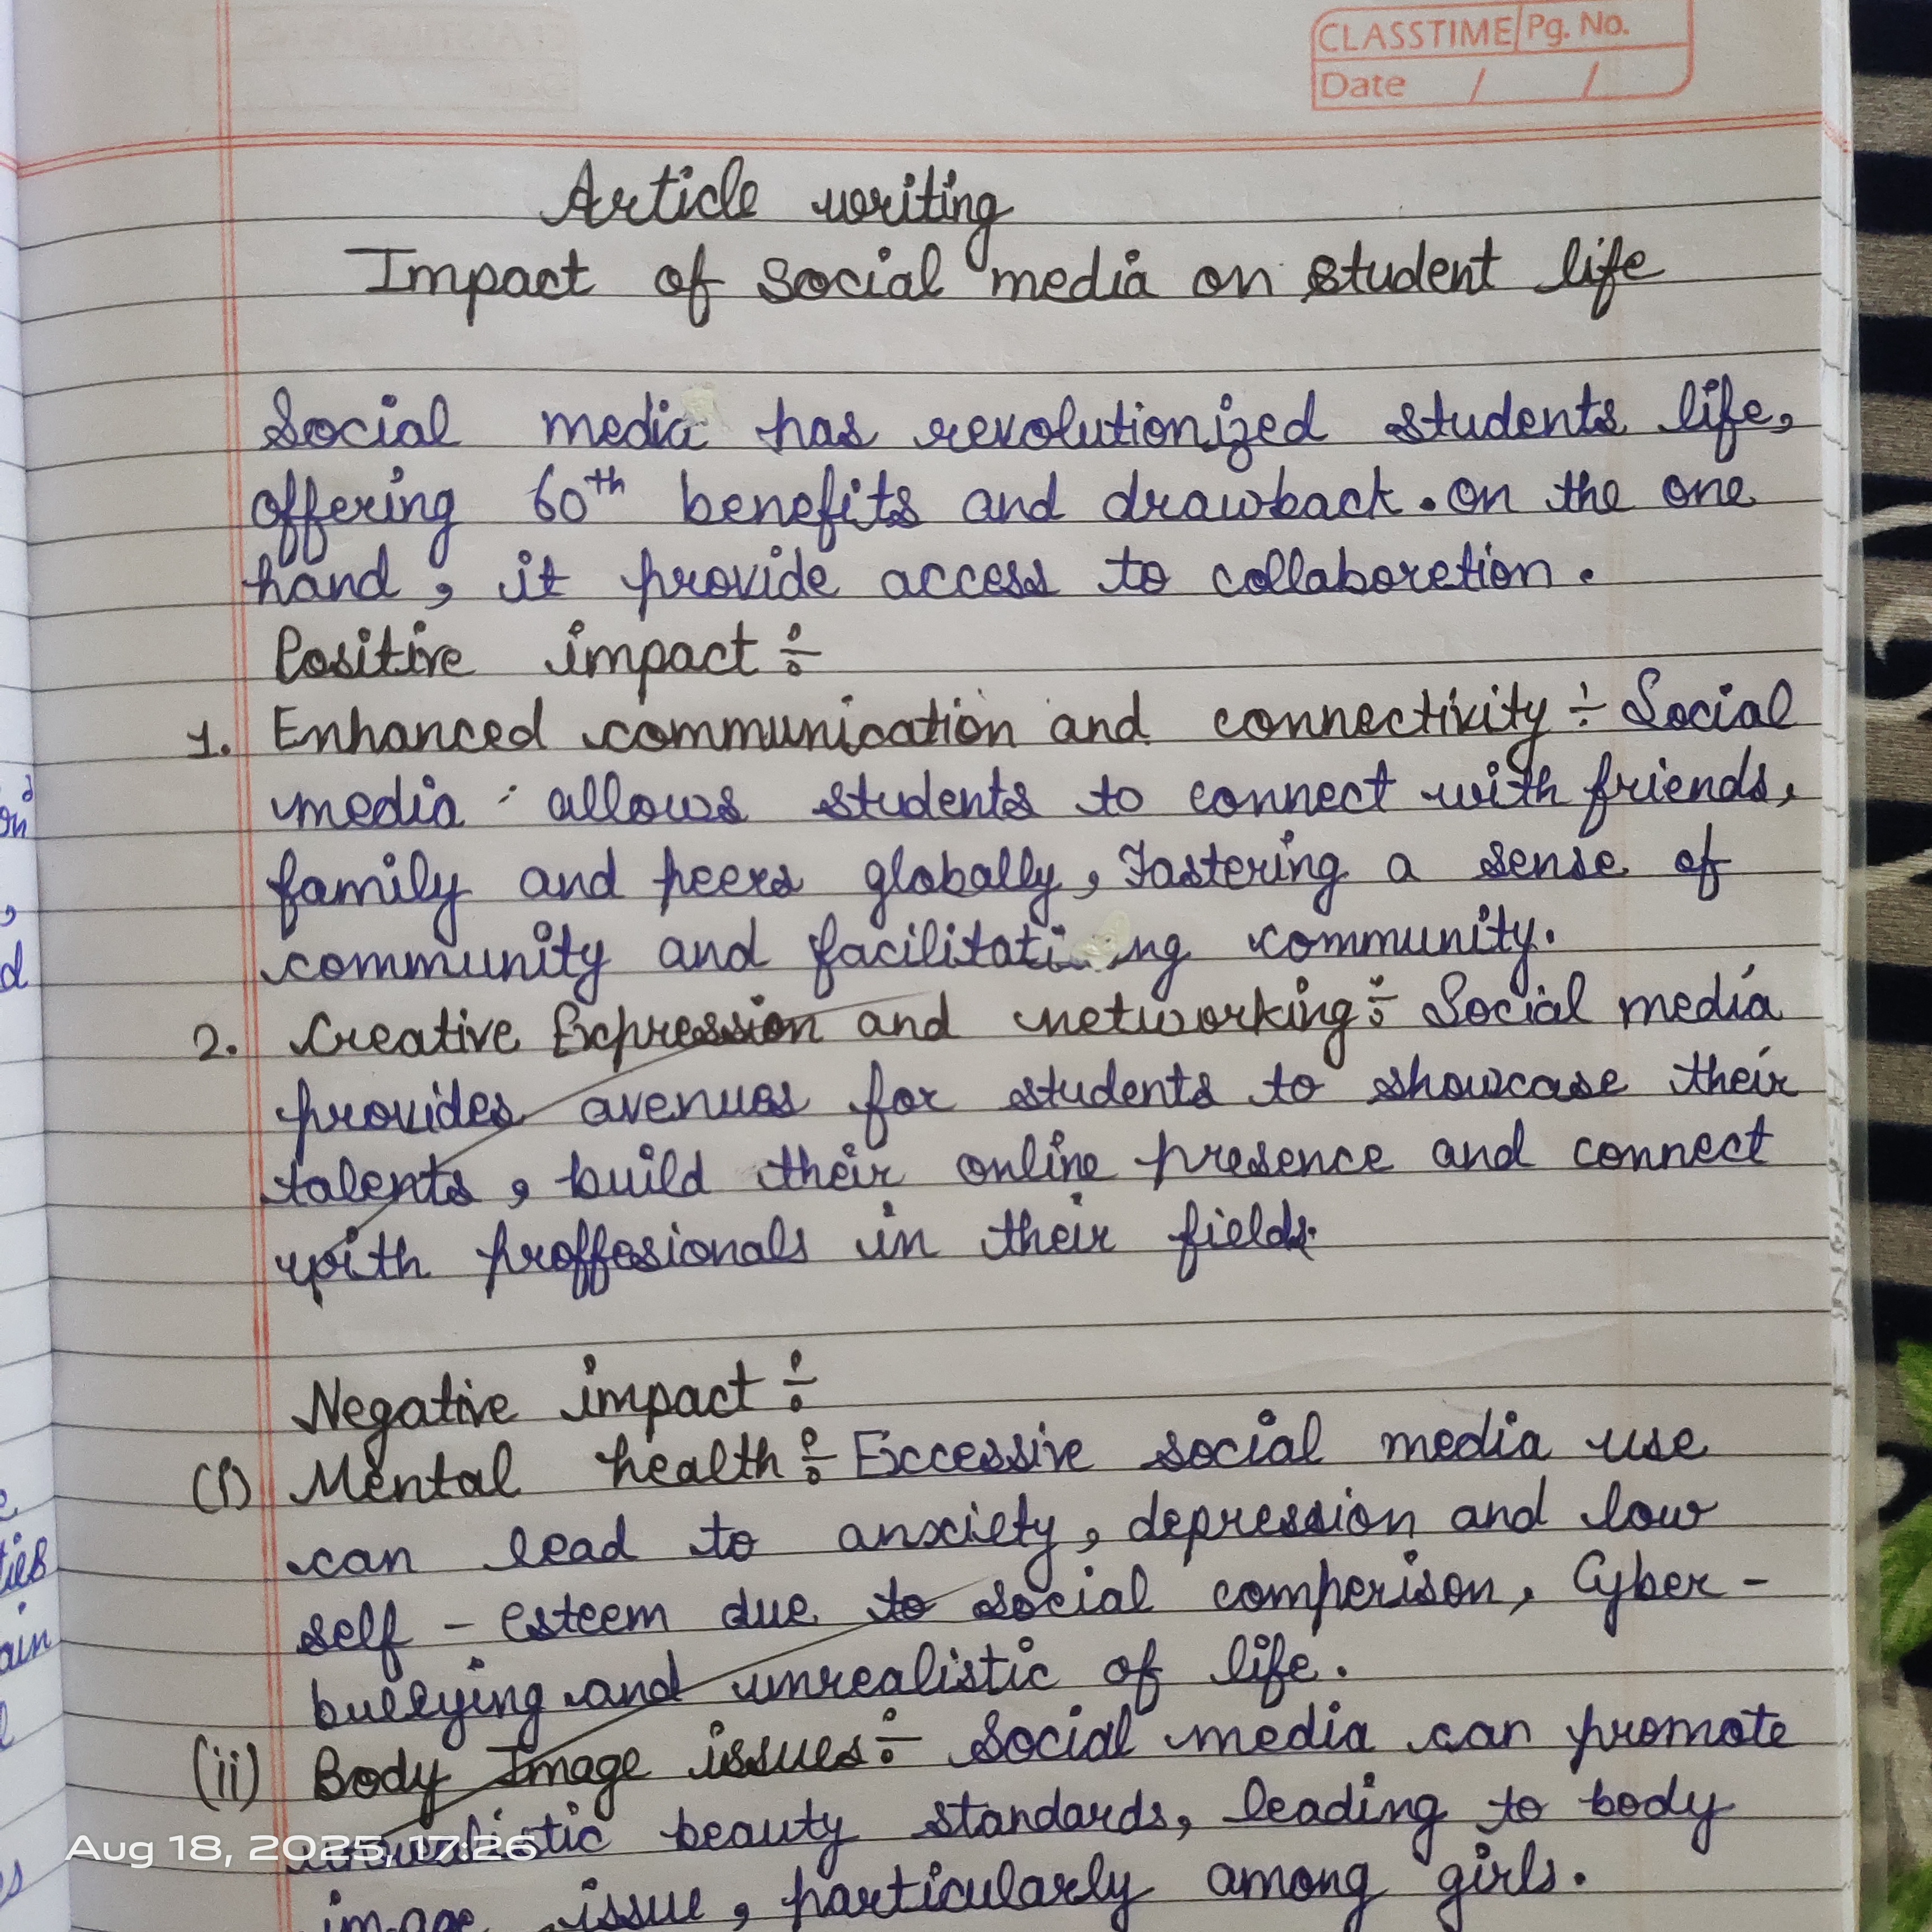 CLASSTIME Pg. No.
Date / /
Article writing
Impact of social media on student life
Social media has revolutionized students life,
offering 60th benefits and drawback. On the one
hand, it provide access to collaboretion.
Positive impact ÷
1. Enhanced communication and connectivity ÷ Social
media allows students to connect with friends,
family and peers globally, Fastering a sense of
community and facilitating community.
2. Creative Expression and networking ÷ Social media
provides avenues for students to showcase their
talents, build their online presence and connect
with proffesionals in their fields.
Negative impact ÷
(i) Mental health ÷ Excessive social media use
can lead to anxiety, depression and low
self - esteem due to social comperison, Cyber -
bullying and unrealistic of life.
(ii) Body Image issues ÷ Social media can promote
unrealistic beauty standards, leading to body
image issue, particularly among girls.
Aug 18, 2025, 17:26